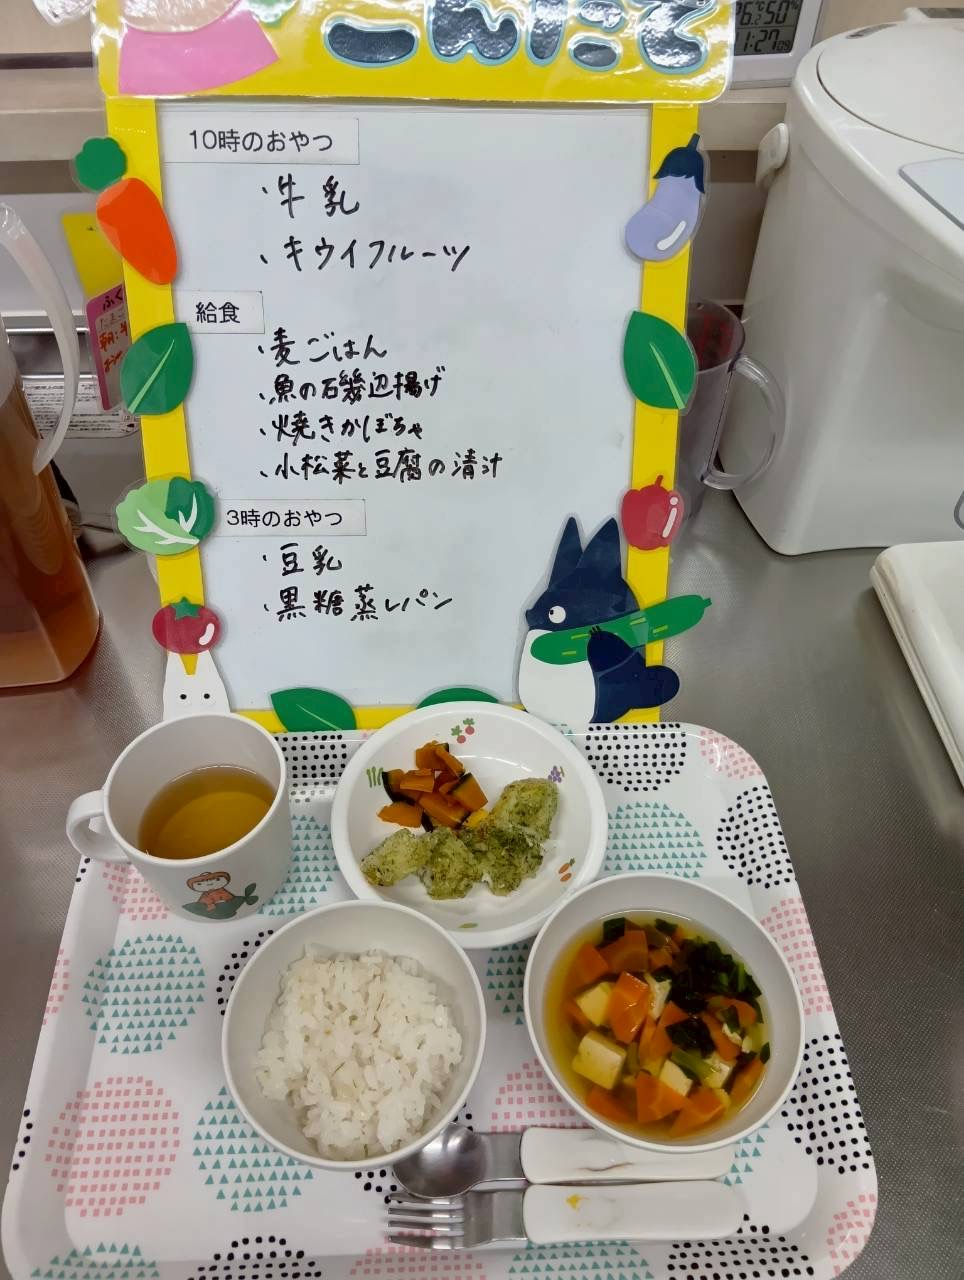 こんだて
26.2℃ 50%
1:27
10時のおやつ
・牛乳
・キウイフルーツ
給食
・麦ごはん
・魚の石磯辺揚げ
・焼きかぼちゃ
・小松菜と豆腐の清汁
3時のおやつ
・豆乳
・黒糖蒸しパン